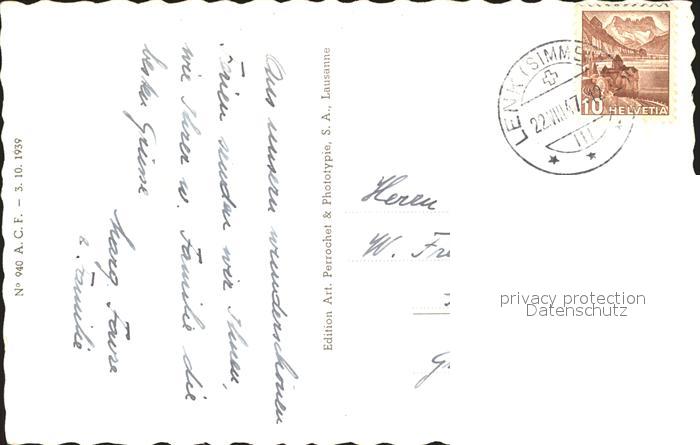 Aus unsern wunderschönen
Ferien senden wir Ihnen,
wie Ihrer w. Familie die
besten Grüsse
Marg. Favre
& Familie
Nº 940 A. C. F. — 3. 10. 1939
Edition Art. Perrochet & Phototypie, S. A., Lausanne
LENK (SIMM
22.VIII.47
III
10 HELVETIA
Herrn
W. Fr
privacy protection
Datenschutz